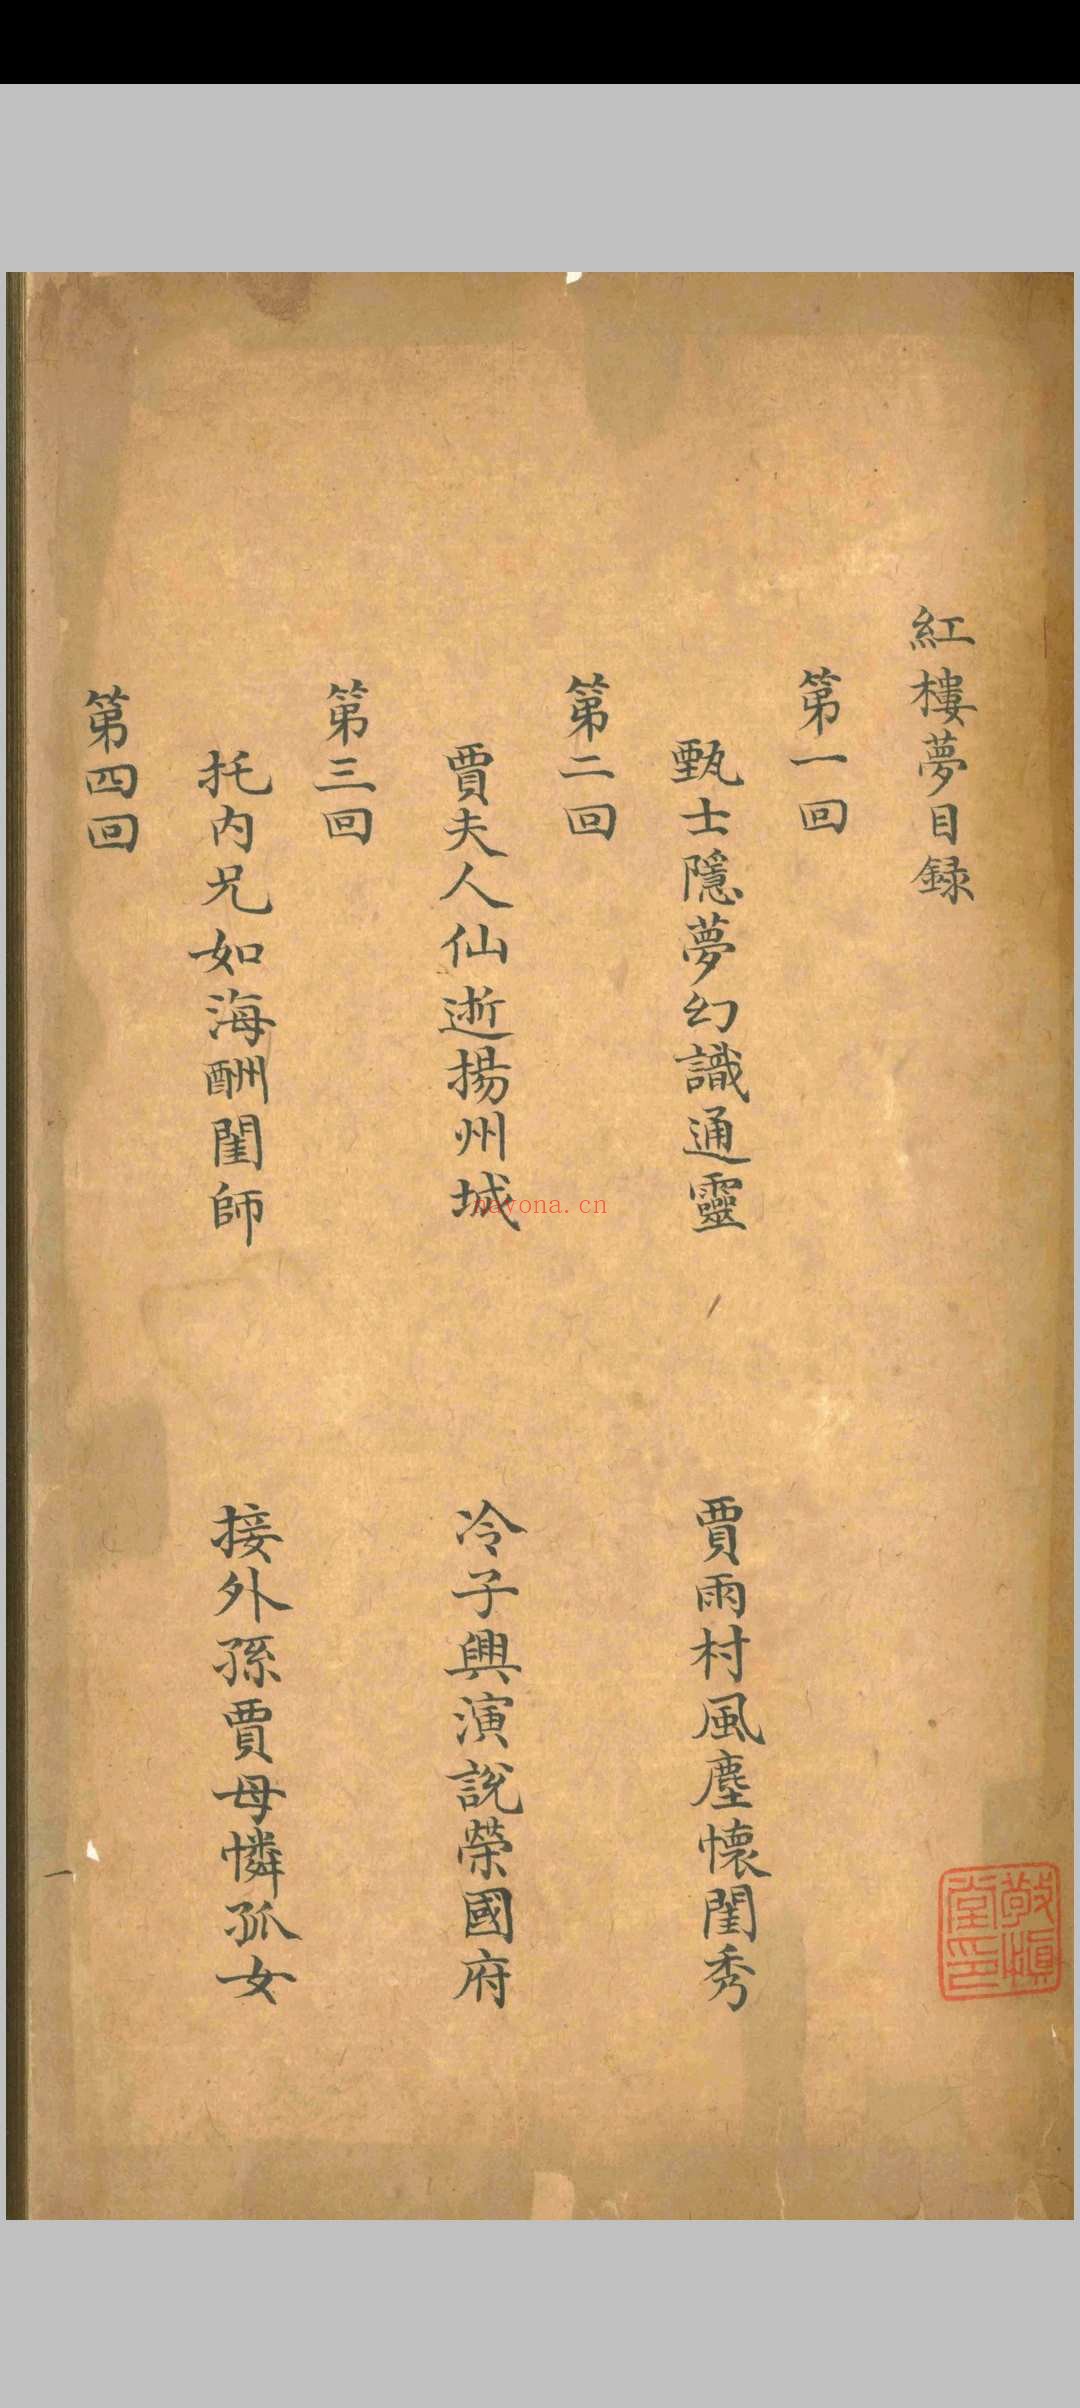 紅樓夢目録
第一回
甄士隱夢幻識通靈 賈雨村風塵懷閨秀
第二回
賈夫人仙逝揚州城 冷子興演說榮國府
第三回
托内兄如海酬閨師 接外孫賈母憐孤女
第四回
敬慎堂印
nayona.cn